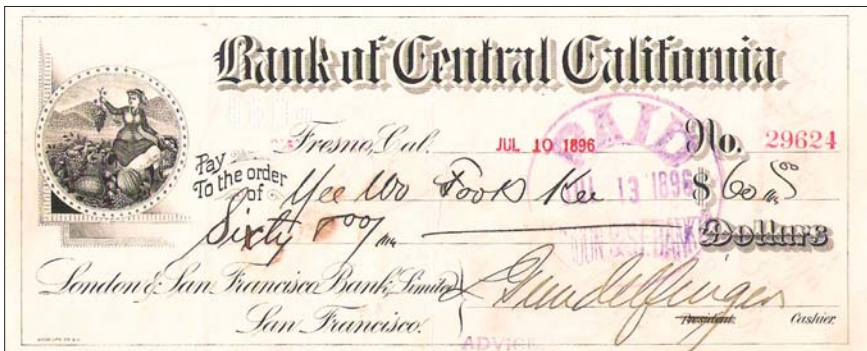 Bank of Central California
Fresno, Cal. JUL 10 1896 No. 29624
PAID
Pay
To the order
of Yee Wo Fook Kee $ 60
13 1896
Sixty Dollars
London & San Francisco Bank, Limited
San Francisco. President. Cashier.
ADVICE